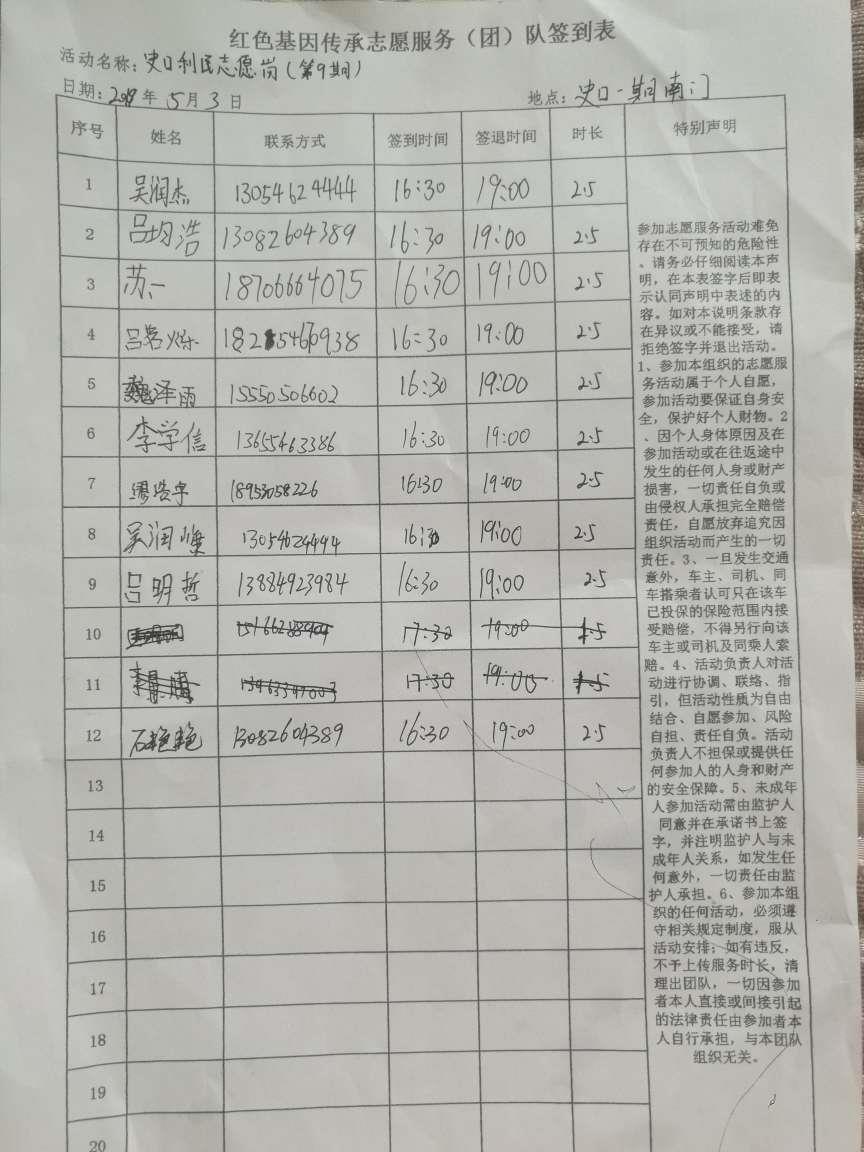 红色基因传承志愿服务（团）队签到表
活动名称：史口利民志愿岗（第9期）
日期：2019年5月3日 地点：史口一期南门
序号 姓名 联系方式 签到时间 签退时间 时长 特别声明
1 吴润杰 13054624444 16:30 19:00 2.5
2 吕均浩 13082604389 16:30 19:00 2.5
3 苏一 18706664075 16:30 19:00 2.5
4 吕茗烁 16:30 19:00 2.5
5 魏泽雨 15550506602 16:30 19:00 2.5
6 李学信 13655463386 16:30 19:00 2.5
7 缪浩宇 18953058226 16:30 19:00 2.5
8 吴润 13054624444 16:30 19:00 2.5
9 吕明哲 13884923984 16:30 19:00 2.5
10 17:30 19:00 1.5
11 17:30 19:00 1.5
12 石艳艳 13082604389 16:30 19:00 2.5
13
14
15
16
17
18
19
20
参加志愿服务活动难免
存在不可预知的危险性
。请务必仔细阅读本声
明，在本表签字后即表
示认同声明中表述的内
容。如对本说明条款存
在异议或不能接受，请
拒绝签字并退出活动。
1、参加本组织的志愿服
务活动属于个人自愿，
参加活动要保证自身安
全，保护好个人财物。2
、因个人身体原因及在
参加活动或在往返途中
发生的任何人身或财产
损害，一切责任自负或
由侵权人承担完全赔偿
责任，自愿放弃追究因
组织活动而产生的一切
责任。3、一旦发生交通
意外，车主、司机、同
车搭乘者认可只在该车
已投保的保险范围内接
受赔偿，不得另行向该
车主或司机及同乘人索
赔。4、活动负责人对活
动进行协调、联络、指
引，但活动性质为自由
结合、自愿参加、风险
自担、责任自负。活动
负责人不担保或提供任
何参加人的人身和财产
的安全保障。5、未成年
人参加活动需由监护人
同意并在承诺书上签
字，并注明监护人与未
成年人关系，如发生任
何意外，一切责任由监
护人承担。6、参加本组
织的任何活动，必须遵
守相关规定制度，服从
活动安排；如有违反，
不予上传服务时长，清
理出团队，一切因参加
者本人直接或间接引起
的法律责任由参加者本
人自行承担，与本团队
组织无关。